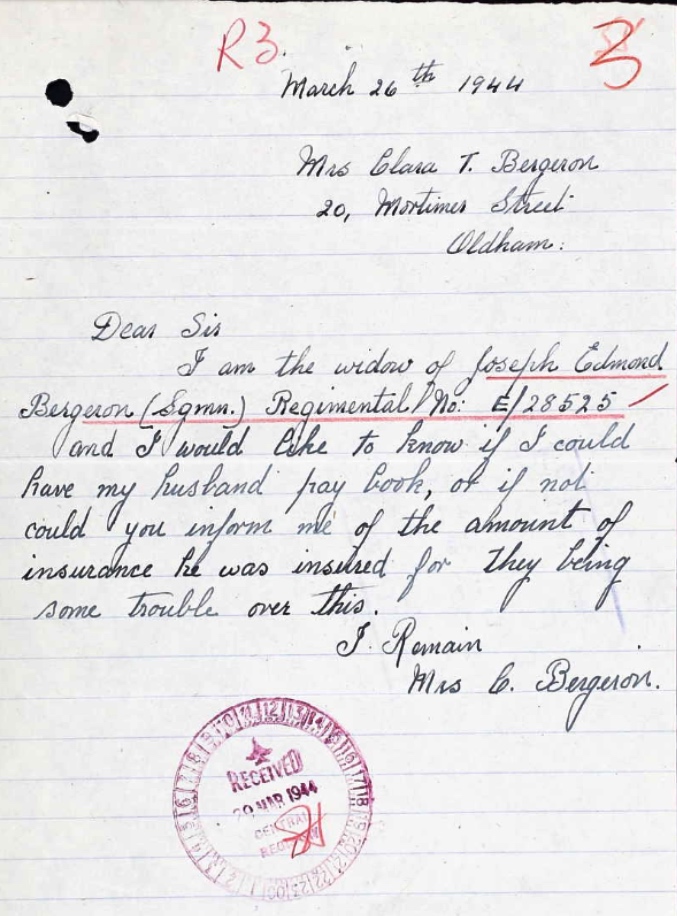 R3.
3
March 26th 1944
Mrs Clara T. Bergeron
20, Mortimer Street
Oldham:
Dear Sir
I am the widow of Joseph Edmond
Bergeron (Sgmn.) Regimental No: E/28525
and I would like to know if I could
have my husband pay book, or if not
could you inform me of the amount of
insurance he was insured for they being
some trouble over this.
I. Remain
Mrs C. Bergeron.
RECEIVED
29 MAR 1944
CENTRAL
REGISTRY